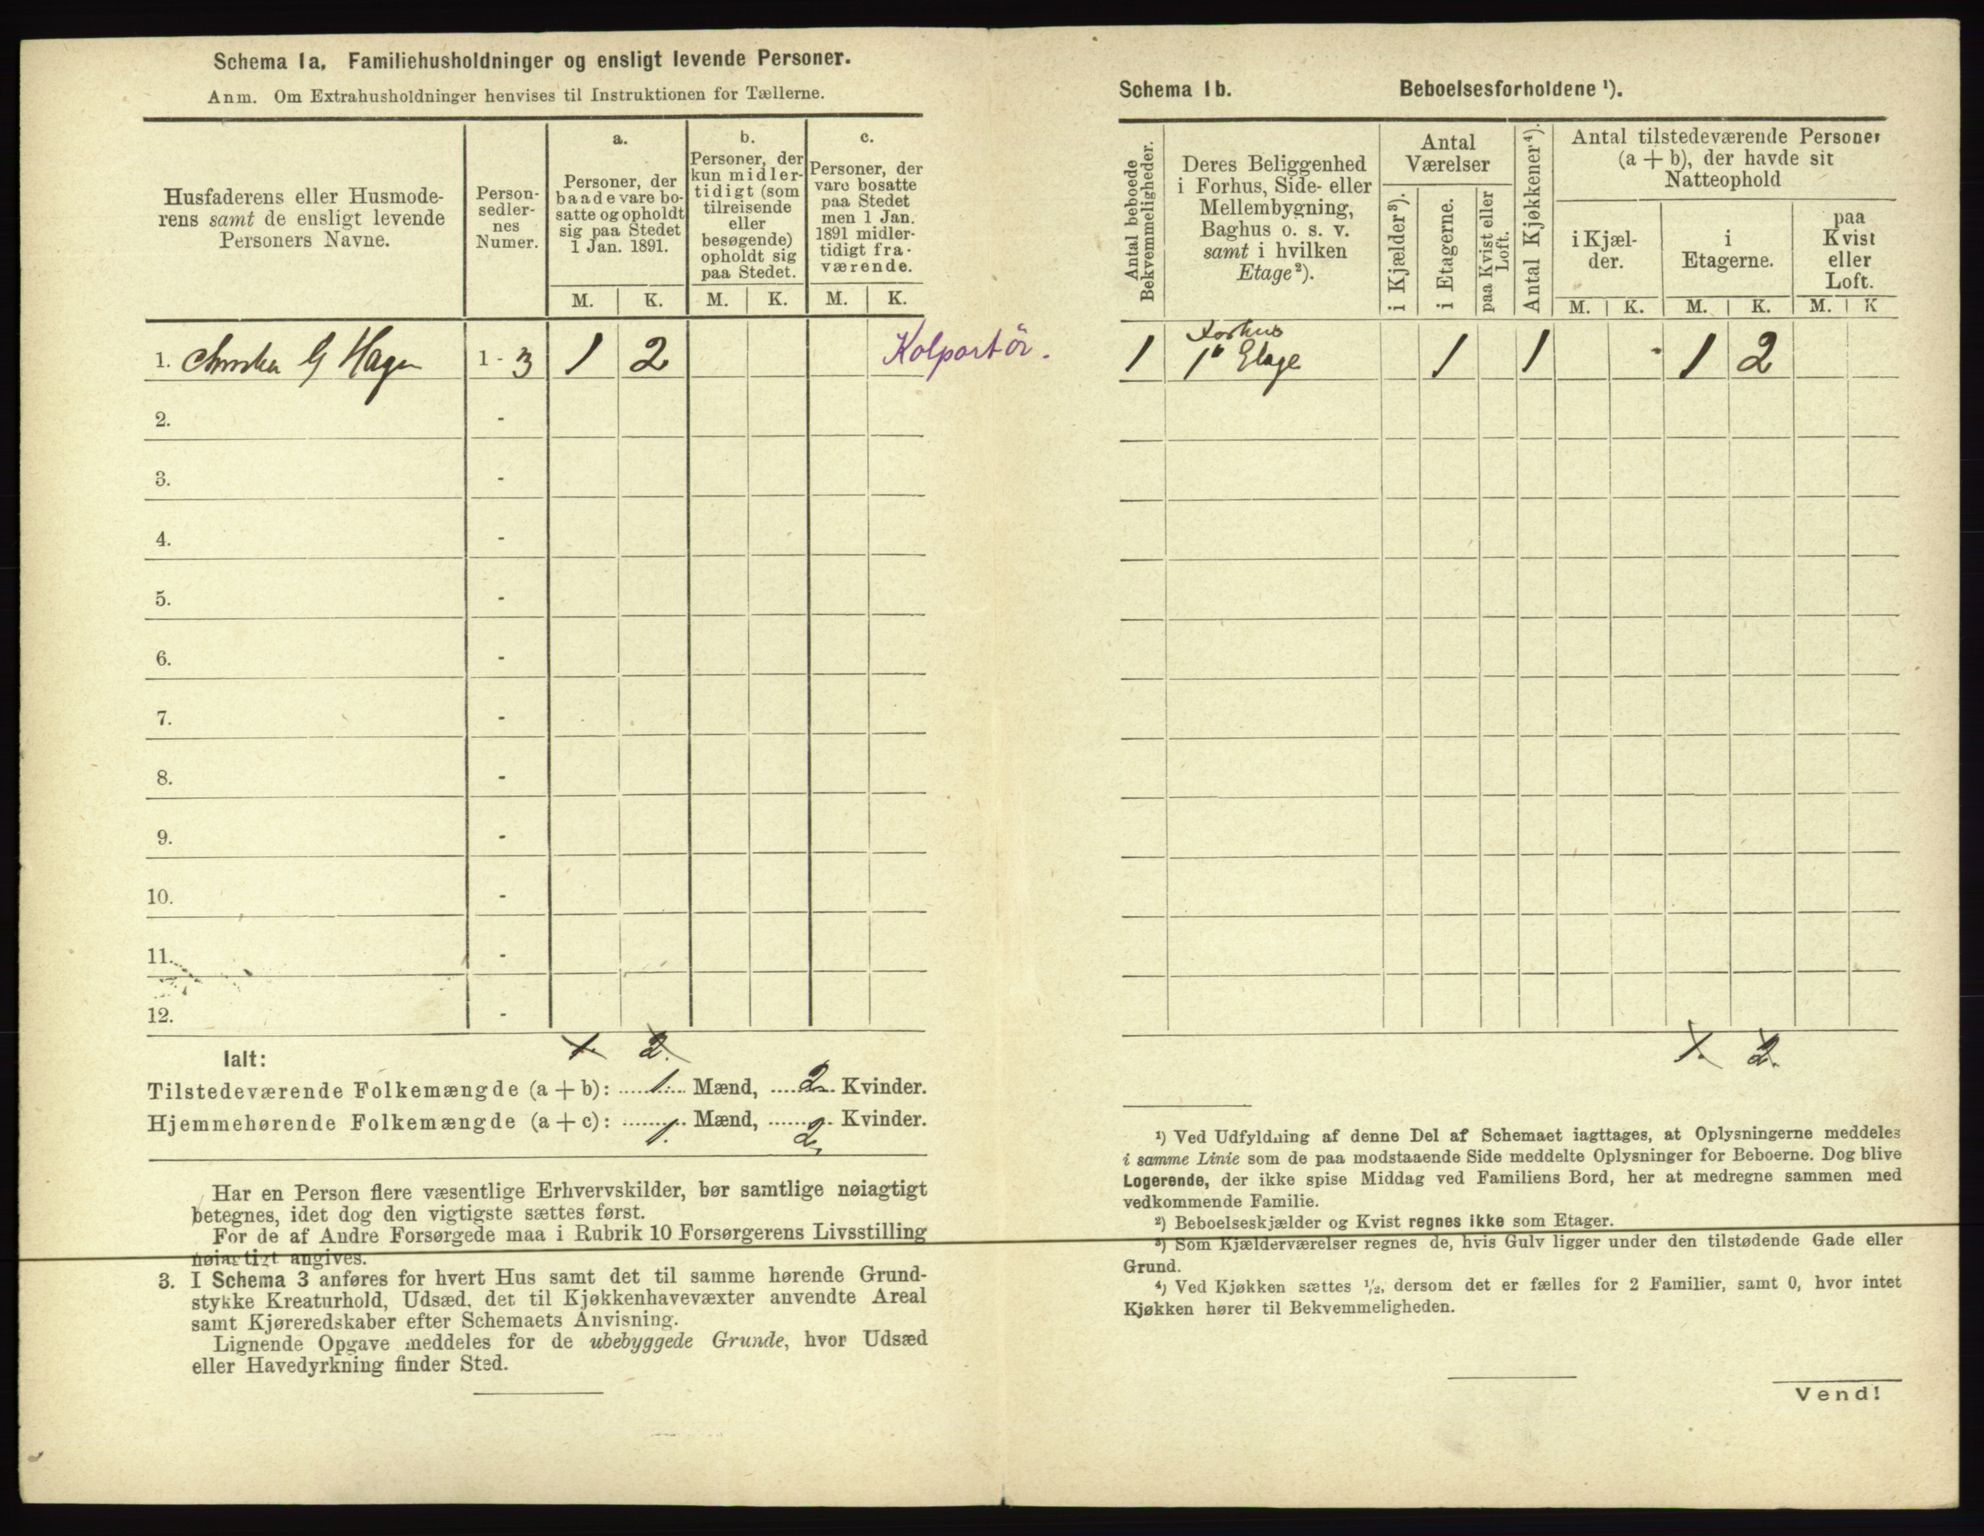 Schema 1a. Familiehusholdninger og ensligt levende Personer.
Anm. Om Extrahusholdninger henvises til Instruktionen for Tællerne.
Husfaderens eller Husmode-
rens samt de ensligt levende
Personers Navne.
Person-
sedler-
nes
Numer.
a.
Personer, der
baade vare bo-
satte og opholdt
sig paa Stedet
1 Jan. 1891.
M. K.
b.
Personer, der
kun midler-
tidigt (som
tilreisende
eller
besøgende)
opholdt sig
paa Stedet.
M. K.
c.
Personer, der
vare bosatte
paa Stedet
men 1 Jan.
1891 midler-
tidigt fra-
værende.
M. K.
1. G Hagen 1 - 3 1 2 Kolportör.
2. -
3. -
4. -
5. -
6. -
7. -
8. -
9. -
10. -
11. -
12. -
1. 2.
Ialt:
Tilstedeværende Folkemængde (a + b): 1. Mænd, 2 Kvinder.
Hjemmehørende Folkemængde (a + c): 1. Mænd, 2 Kvinder.
Har en Person flere væsentlige Erhvervskilder, bør samtlige nøiagtigt
betegnes, idet dog den vigtigste sættes først.
For de af Andre Forsørgede maa i Rubrik 10 Forsørgerens Livsstilling
nøiagtigt angives.
3. I Schema 3 anføres for hvert Hus samt det til samme hørende Grund-
stykke Kreaturhold, Udsæd, det til Kjøkkenhavevæxter anvendte Areal
samt Kjøreredskaber efter Schemaets Anvisning.
Lignende Opgave meddeles for de ubebyggede Grunde, hvor Udsæd
eller Havedyrkning finder Sted.
Schema 1b. Beboelsesforholdene ¹).
Antal beboede
Bekvemmeligheder.
Deres Beliggenhed
i Forhus, Side- eller
Mellembygning,
Baghus o. s. v.
samt i hvilken
Etage²).
Antal
Værelser
i Kjælder³).
i Etagerne.
paa Kvist eller
Loft.
Antal Kjøkkener⁴).
Antal tilstedeværende Personer
(a + b), der havde sit
Natteophold
i Kjæl-
der.
i
Etagerne.
paa
Kvist
eller
Loft.
M. K. M. K. M. K
Forhus
1 1ᵉ Etage 1 1 1 2
1. 2.
¹) Ved Udfyldning af denne Del af Schemaet iagttages, at Oplysningerne meddeles
i samme Linie som de paa modstaaende Side meddelte Oplysninger for Beboerne. Dog blive
Logerende, der ikke spise Middag ved Familiens Bord, her at medregne sammen med
vedkommende Familie.
²) Beboelseskjælder og Kvist regnes ikke som Etager.
³) Som Kjælderværelser regnes de, hvis Gulv ligger under den tilstødende Gade eller
Grund.
⁴) Ved Kjøkken sættes ½, dersom det er fælles for 2 Familier, samt 0, hvor intet
Kjøkken hører til Bekvemmeligheden.
Vend!